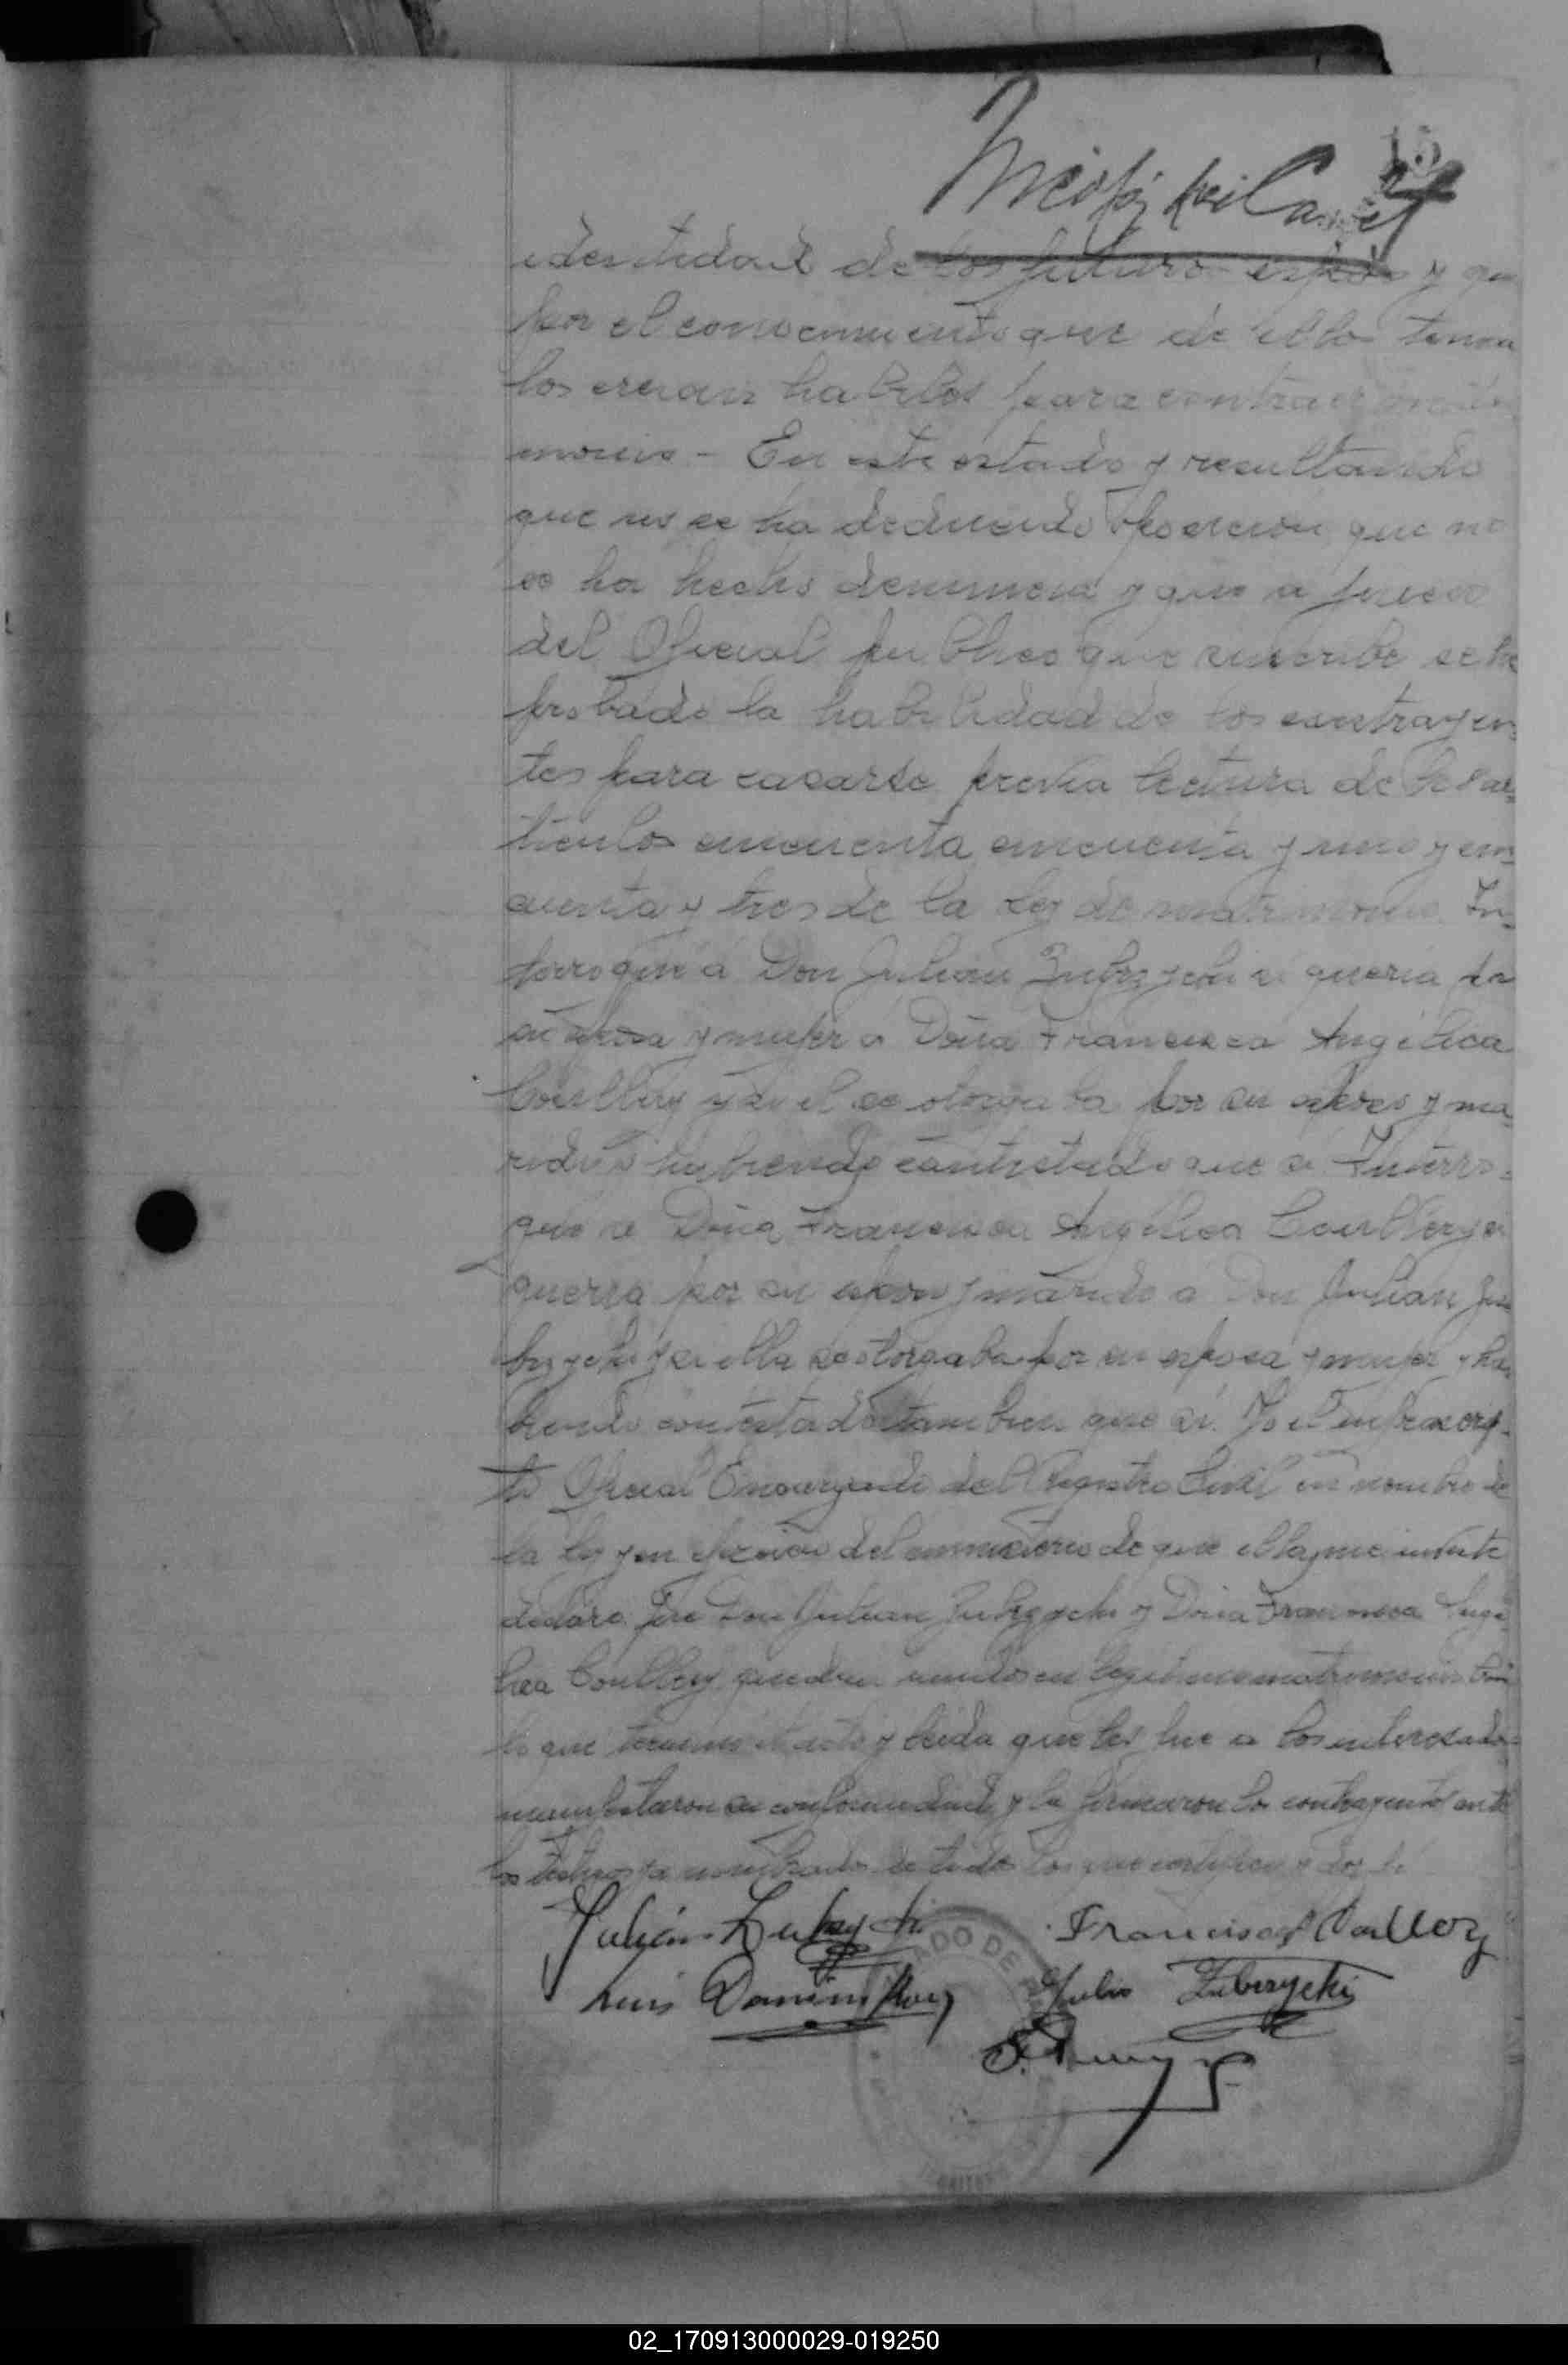 15
identidad de los futuros esposos y que
por el conocimiento que de ellos tenian
los creian habiles para contraer matri
monio - En este estado y resultando
que no se ha deducido oposicion que no
se ha hecho denuncia y que a juicio
del Oficial publico que suscribe se ha
probado la habilidad de los contrayen-
tes para casarse previa lectura de los ar-
ticulos cincuenta, cincuenta y uno y cin-
cuenta y tres de la Ley de matrimonio In-
terrogué á Don Julian Zubrzycki si queria por
su esposa y mujer á Doña Francisca Angélica
Coullery y si el se otorgaba por su esposo y ma-
rido y habiendo contestado que si Interro-
gué a Doña Francisca Angelica Coullery si
queria por su esposo y marido a Don Julian Zu
brzycki y si ella se otorgaba por su esposa y mujer y ha-
biendo contestado tambien que si. Yo el infrascrip-
to Oficial Encargado del Registro Civil en nombre de
la ley y en ejercicio del ministerio de que ella me inviste
declaro que Don Julian Zubrzycki y Doña Francisca Angé
lica Coullery quedan unidos en legitimo matrimonio Con
lo que termino el acto y leida que les fue a los interesados
manifestaron su conformidad y la firmaron los contrayentes ante
los testigos ya nombrados de todo lo que certifico y doy fé
Julián Zubrzycki Francisca A Coullery
Luis Julio Zubrzycki
ADO DE
02_170913000029-019250